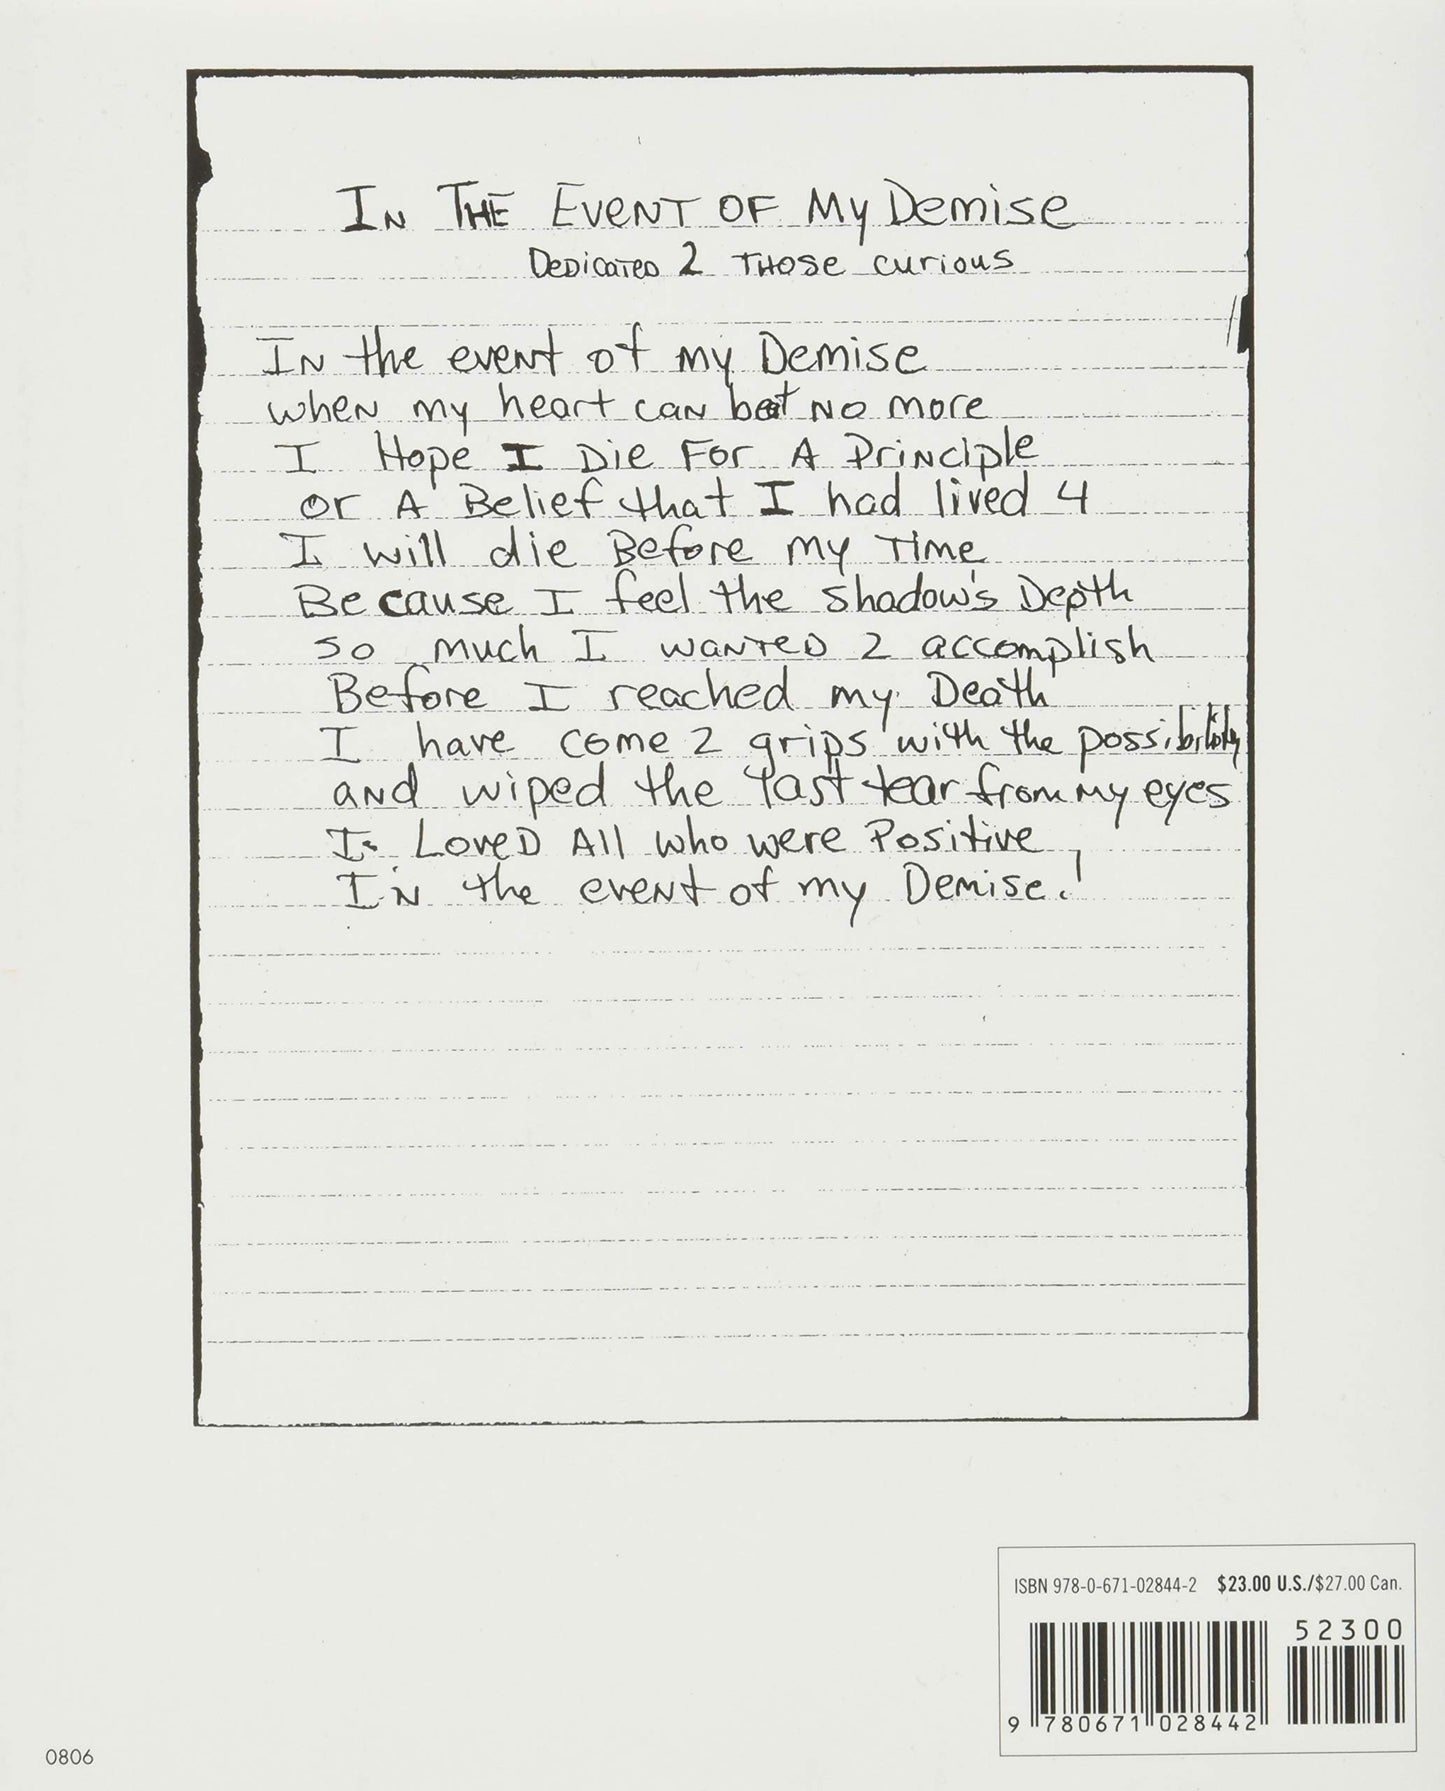 In The Event of My Demise
Dedicated 2 those curious
In the event of my Demise
when my heart can beat no more
I Hope I Die For A Principle
or A Belief that I had lived 4
I will die Before my Time
Because I feel the shadow's Depth
so much I wanted 2 accomplish
Before I reached my Death
I have come 2 grips with the possibility
and wiped the last tear from my eyes
I Loved All who were Positive
In the event of my Demise!
ISBN 978-0-671-02844-2 $23.00 U.S./$27.00 Can.
52300
9 780671 028442
0806